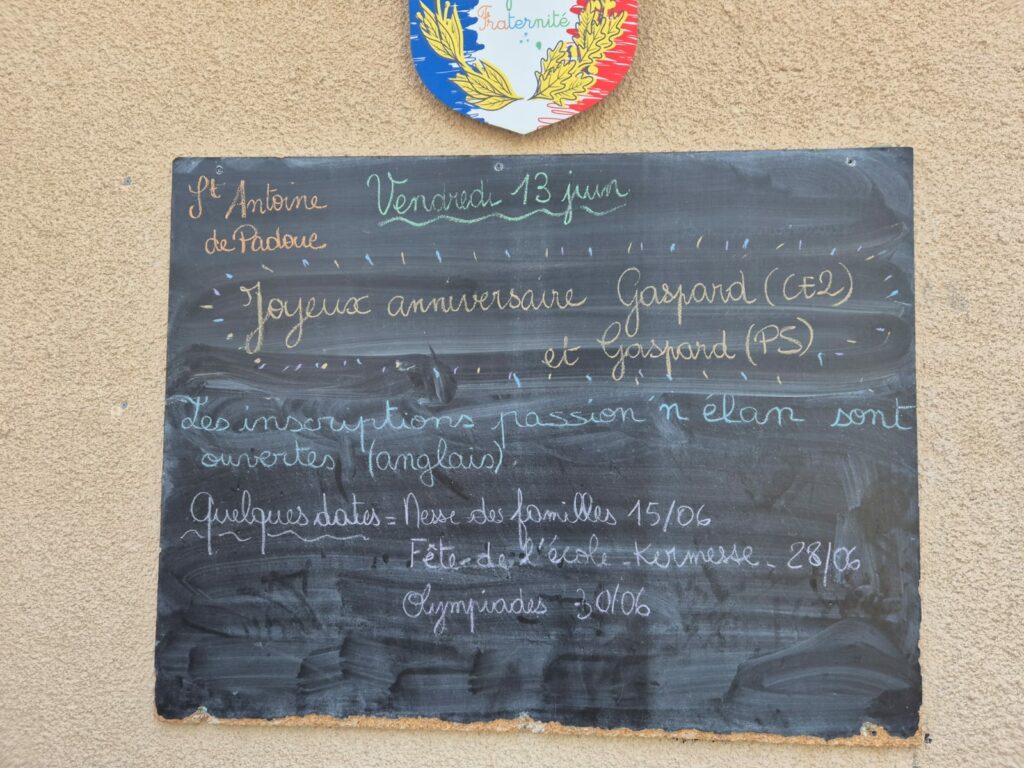 Fraternité
St Antoine
de Padoue
Vendredi 13 juin
Joyeux anniversaire Gaspard (CE2)
et Gaspard (PS)
Les inscriptions passion'n élan sont
ouvertes (anglais)
Quelques dates = Messe des familles 15/06
Fête de l'école - Kermesse - 28/06
Olympiades 30/06